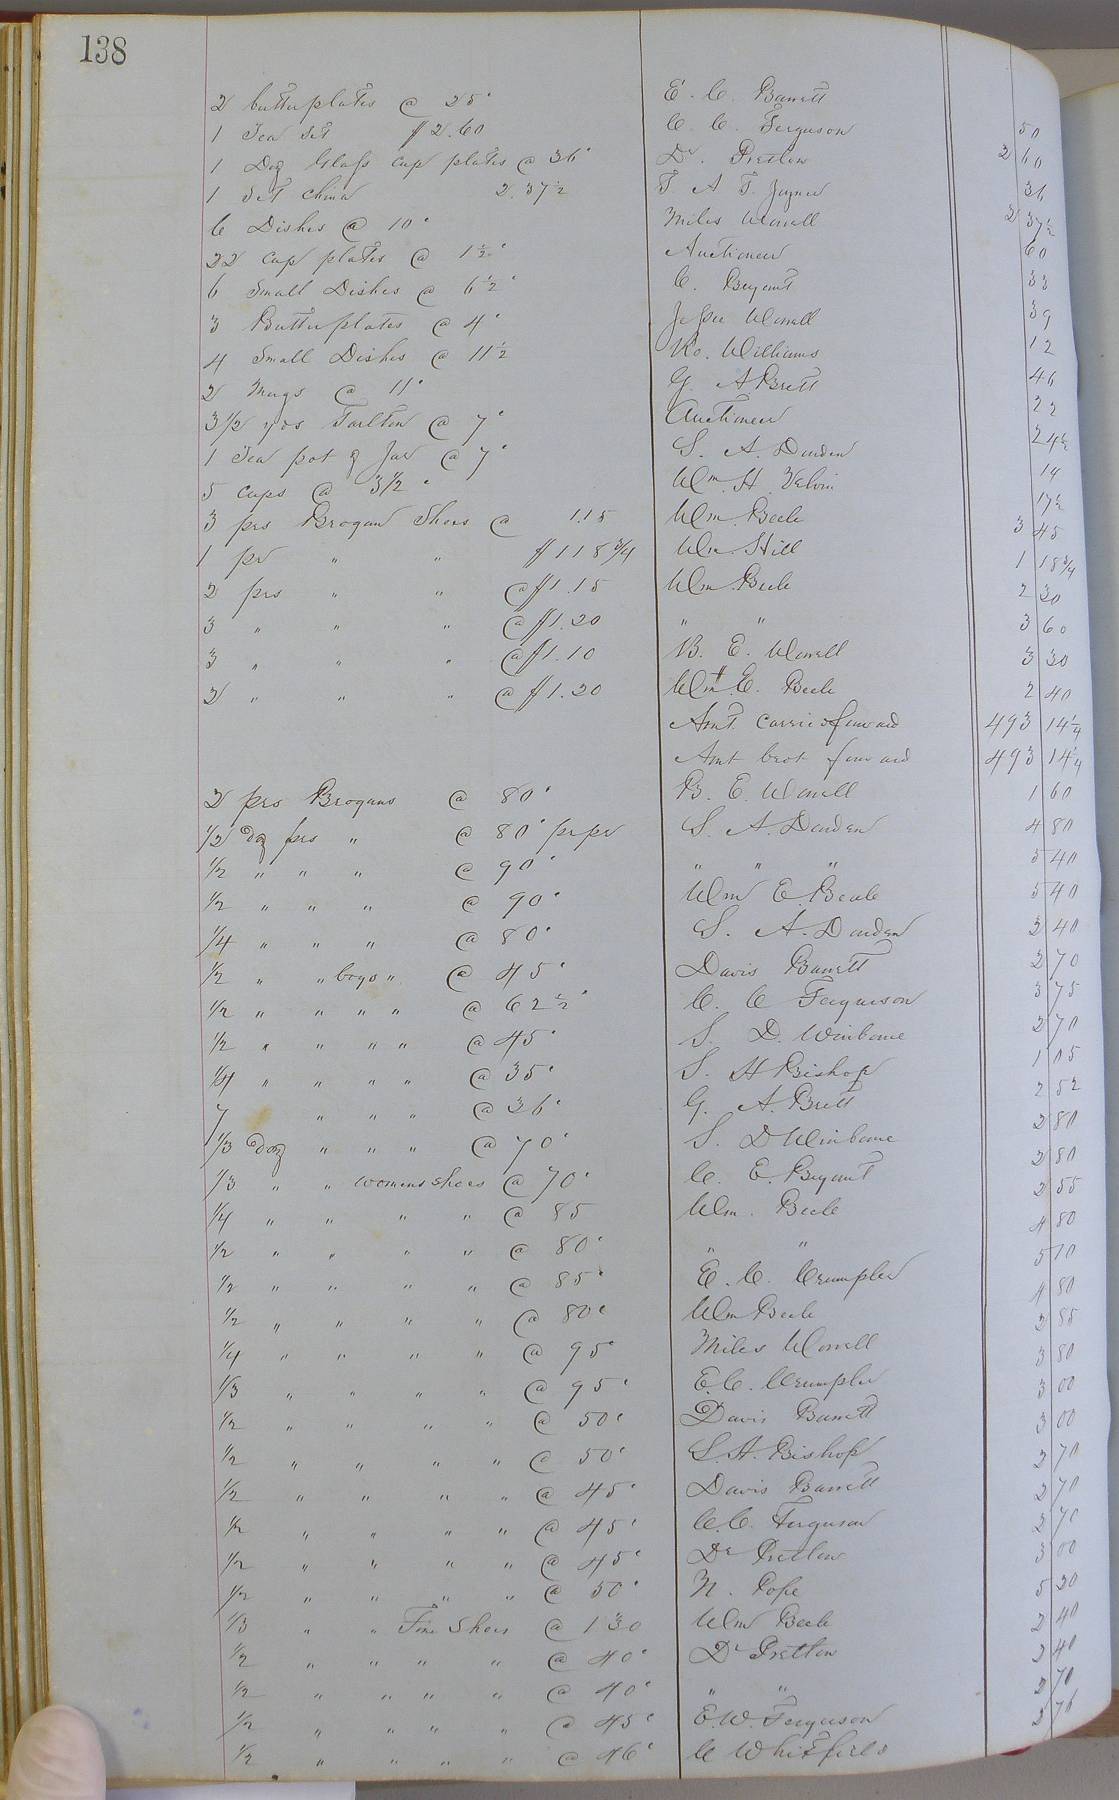 138
2 butterplates @ 25c E. C. Barrett 50
1 Tea Set $2.60 C. C. Ferguson 2 60
1 Doz Glass cup plates @ 36c Dr. Pretlow 36
1 Set China 2.37½ T. A. T. Joyner 2 37½
6 Dishes @ 10c Miles Worrell 60
22 cup plates @ 1½c Auctioneer 33
6 Small Dishes @ 6½c C. Bryant 39
3 Butterplates @ 4c Jesse Worrell 12
4 Small Dishes @ 11½ Ro. Williams 46
2 Mugs @ 11c G. A Brett 22
3 1/2 yds Tarlton @ 7c Auctioneer 24½
1 Tea pot & Jar @ 7c S. A. Darden 14
5 cups @ 3½c Wm. H. 17½
3 prs Brogan Shoes @ 1.15 Wm. Beele 3 45
1 pr " " $1 18 3/4 Wm. Hill 1 18 3/4
2 prs " " @ $1.15 Wm. Beele 2 30
3 " " " @ $1.20 " " 3 60
3 " " " @ $1.10 B. E. Worrell 3 30
2 " " " @ $1.20 Wm. E. Beele 2 40
Amt carried forward 493 14¼
Amt brot forward 493 14¼
2 prs Brogans @ 80c B. E. Worrell 1 60
1/2 doz prs " @ 80c pr pr S. A. Darden 4 80
1/2 " " " @ 90c " " " 5 40
1/2 " " " @ 90c Wm E. Beele 5 40
1/4 " " " @ 80c S. A. Darden 2 40
1/2 " " boys " @ 45c Davis Barrett 2 70
1/2 " " " " @ 62½c C. C Ferguson 3 75
1/2 " " " " @ 45c S. D. Winborne 2 70
1/4 " " " " @ 35c S. H Bishop 1 05
7 " " " @ 36c G. A. Brett 2 52
1/3 doz " " " @ 70c S. D Winborne 2 80
1/3 " " womens shoes @ 70c C. E. Bryant 2 80
1/4 " " " " @ 85 Wm. Beele 2 55
1/2 " " " " @ 80c " " 4 80
1/2 " " " " @ 85c E. C. Crumpler 5 10
1/2 " " " " @ 80c Wm Beele 4 80
1/4 " " " " @ 95c Miles Worrell 2 85
1/3 " " " " @ 95c E. C. Crumpler 3 80
1/2 " " " " @ 50c Davis Barrett 3 00
1/2 " " " " @ 50c S. H. Bishop 3 00
1/2 " " " " @ 45c Davis Barrett 2 70
1/2 " " " " @ 45c C. C. Ferguson 2 70
1/2 " " " " @ 45c Dr Pretlow 2 70
1/2 " " " " @ 50c N. Pope 3 00
1/3 " " Fine Shoes @ 1 30 Wm Beele 5 20
1/2 " " " " @ 40c Dr Pretlow 2 40
1/2 " " " " @ 40c " " 2 40
1/2 " " " " @ 45c E. W. Ferguson 2 70
1/2 " " " " @ 46c C Whitfield 2 76